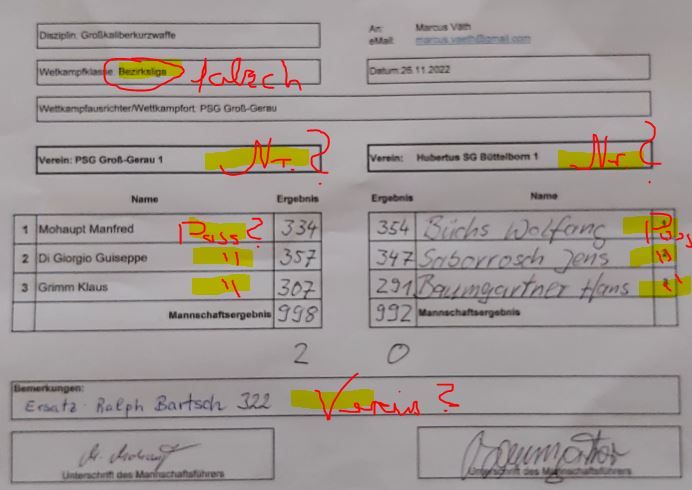 Disziplin: Großkaliberkurzwaffe
An: Marcus Väth
eMail: marcus.vaeth@gmail.com
Wetkampfklasse: Bezirksliga falsch
Datum:26.11.2022
Wettkampfausrichter/Wettkampfort: PSG Groß-Gerau
Verein: PSG Groß-Gerau 1 Nr. ?
Verein: Hubertus SG Büttelborn 1 Nr ?
Name Ergebnis Ergebnis Name
1 Mohaupt Manfred Pass? 334 354 Büchs Wolfgang Pass
2 Di Giorgio Guiseppe " 357 347 Saborrosch Jens "
3 Grimm Klaus " 307 291 Baumgartner Hans "
Mannschaftsergebnis 998 992 Mannschaftsergebnis
2 0
Bemerkungen:
Ersatz: Ralph Bartsch 322 Verein ?
Unterschrift des Mannschaftsführers
Unterschrift des Mannschaftsführers